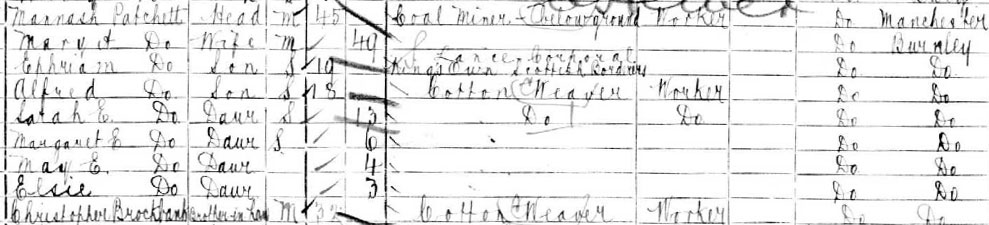 Mannash Patchett Head M 45 Coal Miner - (Below ground Worker Do Manchester
Mary A Do Wife M 49 Do Burnley
Ephriam Do Son S 19 Lance Corporal Kings Own Scottish Borderers Do Do
Alfred Do Son S 18 Cotton Weaver Worker Do Do
Sarah E. Do Daur S 13 Do Do Do Do
Margaret E Do Daur S 6 Do Do
May E. Do Daur 4 Do Do
Elsie Do Daur 3 Do Do
Christopher Brockbank Brother-in-law M Cotton Weaver Worker Do Do